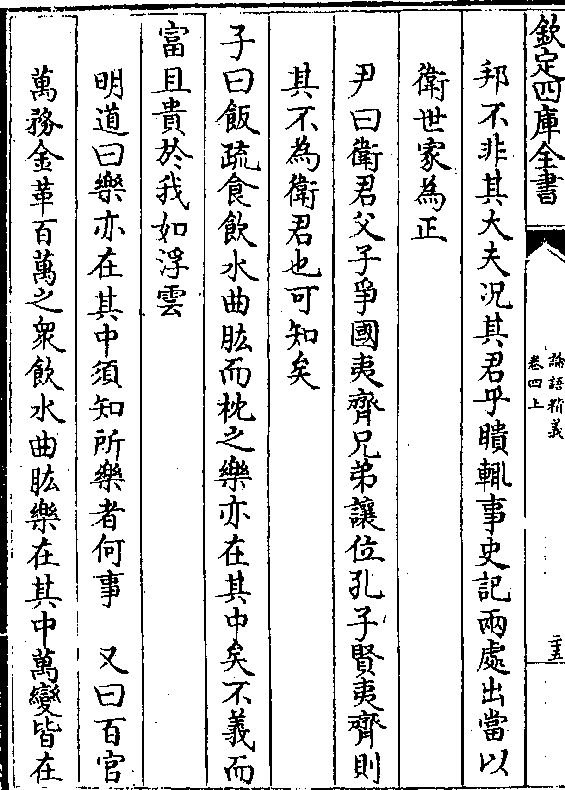 欽定四庫全書
論語精義
卷四上
二十五
邦不非其大夫况其君乎瞶輒事史記兩處出當以
衛世家為正
尹曰衛君父子爭國夷齊兄弟讓位孔子賢夷齊則
其不為衛君也可知矣
子曰飯疏食飲水曲肱而枕之樂亦在其中矣不義而
富且貴於我如浮雲
明道曰樂亦在其中須知所樂者何事　又曰百官
萬務金革百萬之衆飲水曲肱樂在其中萬變皆在